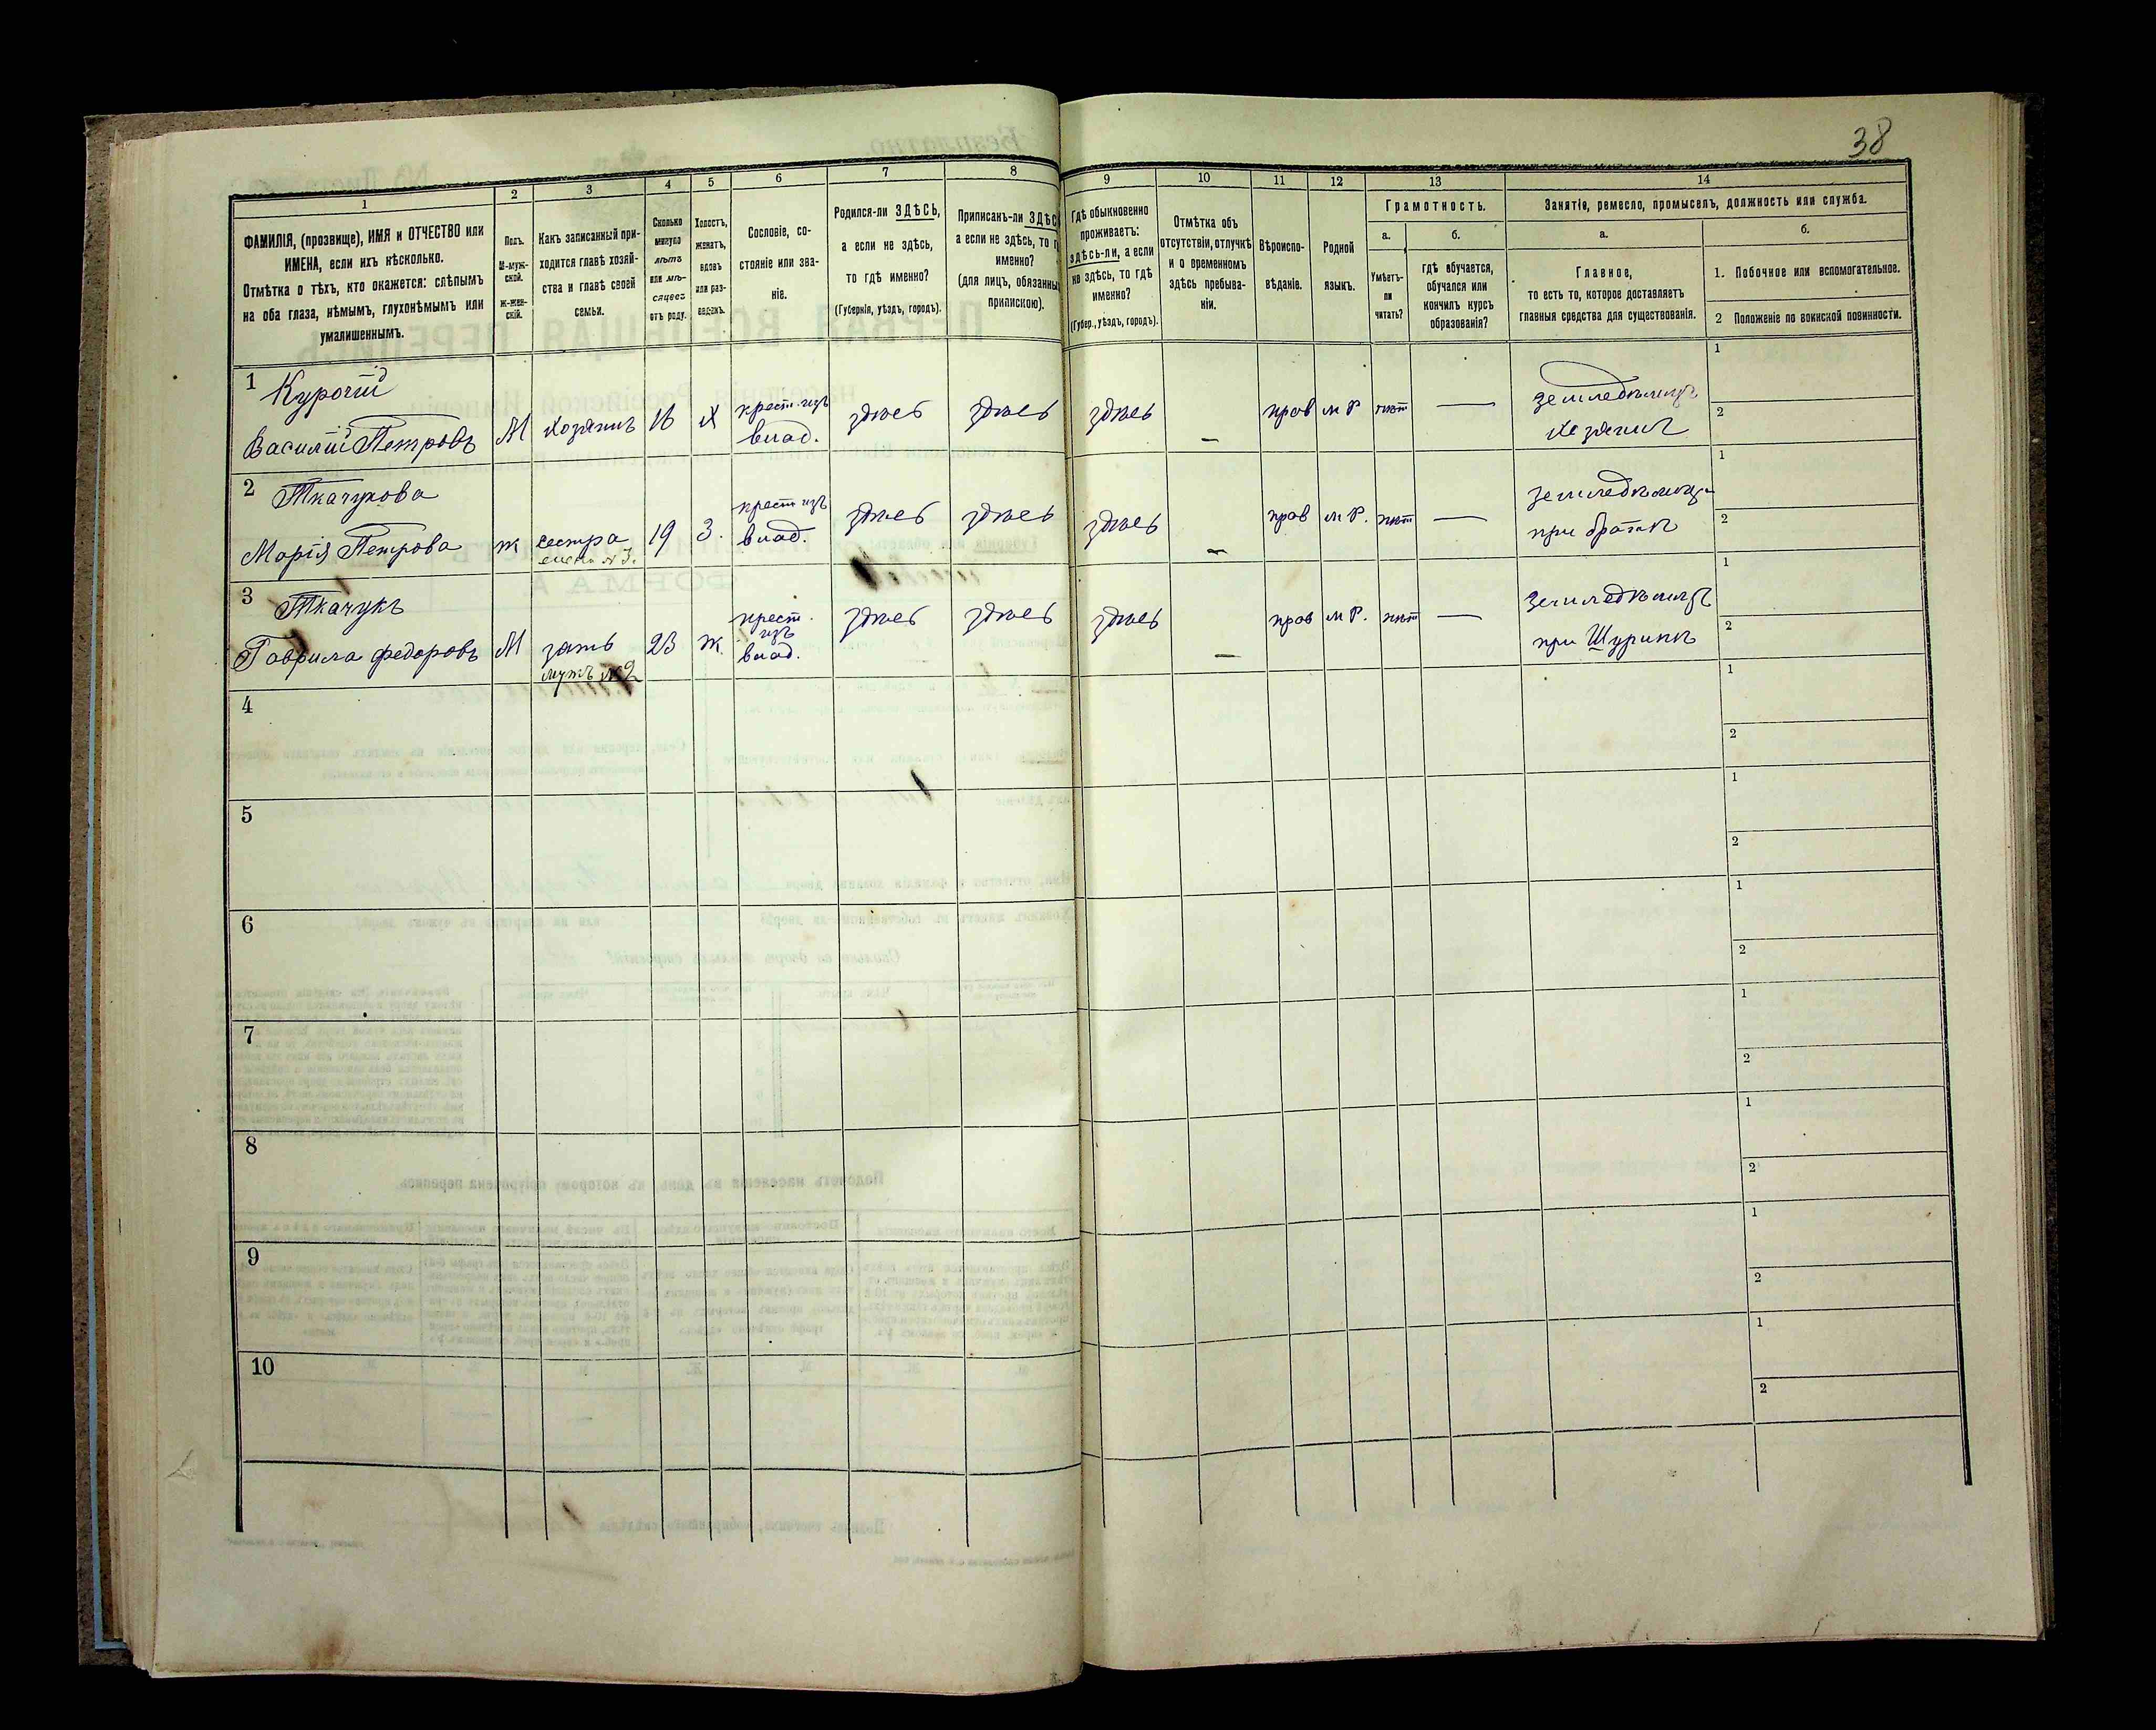 38
1
2
3
4
5
6
7
8
9
10
11
12
13
14
ФАМИЛІЯ, (прозвище), ИМЯ и ОТЧЕСТВО или
ИМЕНА, если ихъ нѣсколько.
Отмѣтка о тѣхъ, кто окажется: слѣпымъ
на оба глаза, нѣмымъ, глухонѣмымъ или
умалишеннымъ.
Полъ.
М-муж-
ской.
Ж-жен-
скій.
Какъ записанный при-
ходится главѣ хозяй-
ства и главѣ своей
семьи.
Сколько
минуло
лѣтъ
или мѣ-
сяцевъ
отъ роду.
Холостъ,
женатъ,
вдовъ
или раз-
веденъ.
Сословіе, со-
стояніе или зва-
ніе.
Родился-ли ЗДѢСЬ,
а если не здѣсь,
то гдѣ именно?
(Губернія, уѣздъ, городъ).
Приписанъ-ли ЗДѢС
а если не здѣсь, то г
именно?
(для лицъ, обязанны
припискою).
Гдѣ обыкновенно
проживаетъ:
здѣсь-ли, а если
не здѣсь, то гдѣ
именно?
(Губер., уѣздъ, городъ).
Отмѣтка объ
отсутствіи, отлучкѣ
и о временномъ
здѣсь пребыва-
ніи.
Вѣроиспо-
вѣданіе.
Родной
языкъ.
Грамотность.
а.
Умѣетъ-
ли
читать?
б.
гдѣ обучается,
обучался или
кончилъ курсъ
образованія?
Занятіе, ремесло, промыселъ, должность или служба.
а.
Главное,
то есть то, которое доставляетъ
главныя средства для существованія.
б.
1. Побочное или вспомогательное.
2 Положеніе по воинской повинности.
1 Курочій
Василій Петровъ
М
хозяинъ
16
Х
крест. изъ
влад.
здѣсь
здѣсь
здѣсь
—
прав
м Р
нѣт
—
земледѣлецъ
хозяинъ
1
2
2 Ткачукова
Марія Петрова
ж
сестра
жена №3.
19
З.
крест изъ
влад.
здѣсь
здѣсь
здѣсь
—
прав
м Р.
нѣт
—
при братѣ
1
2
3 Ткачукъ
Гаврила Федоровъ
М
зять
мужъ №2
23
Ж.
крест.
изъ
влад.
здѣсь
здѣсь
здѣсь
—
прав
м Р.
нѣт
—
земледѣлецъ
при Шуринѣ
1
2
4
1
2
5
1
2
6
1
2
7
1
2
8
1
2
9
1
2
10
1
2